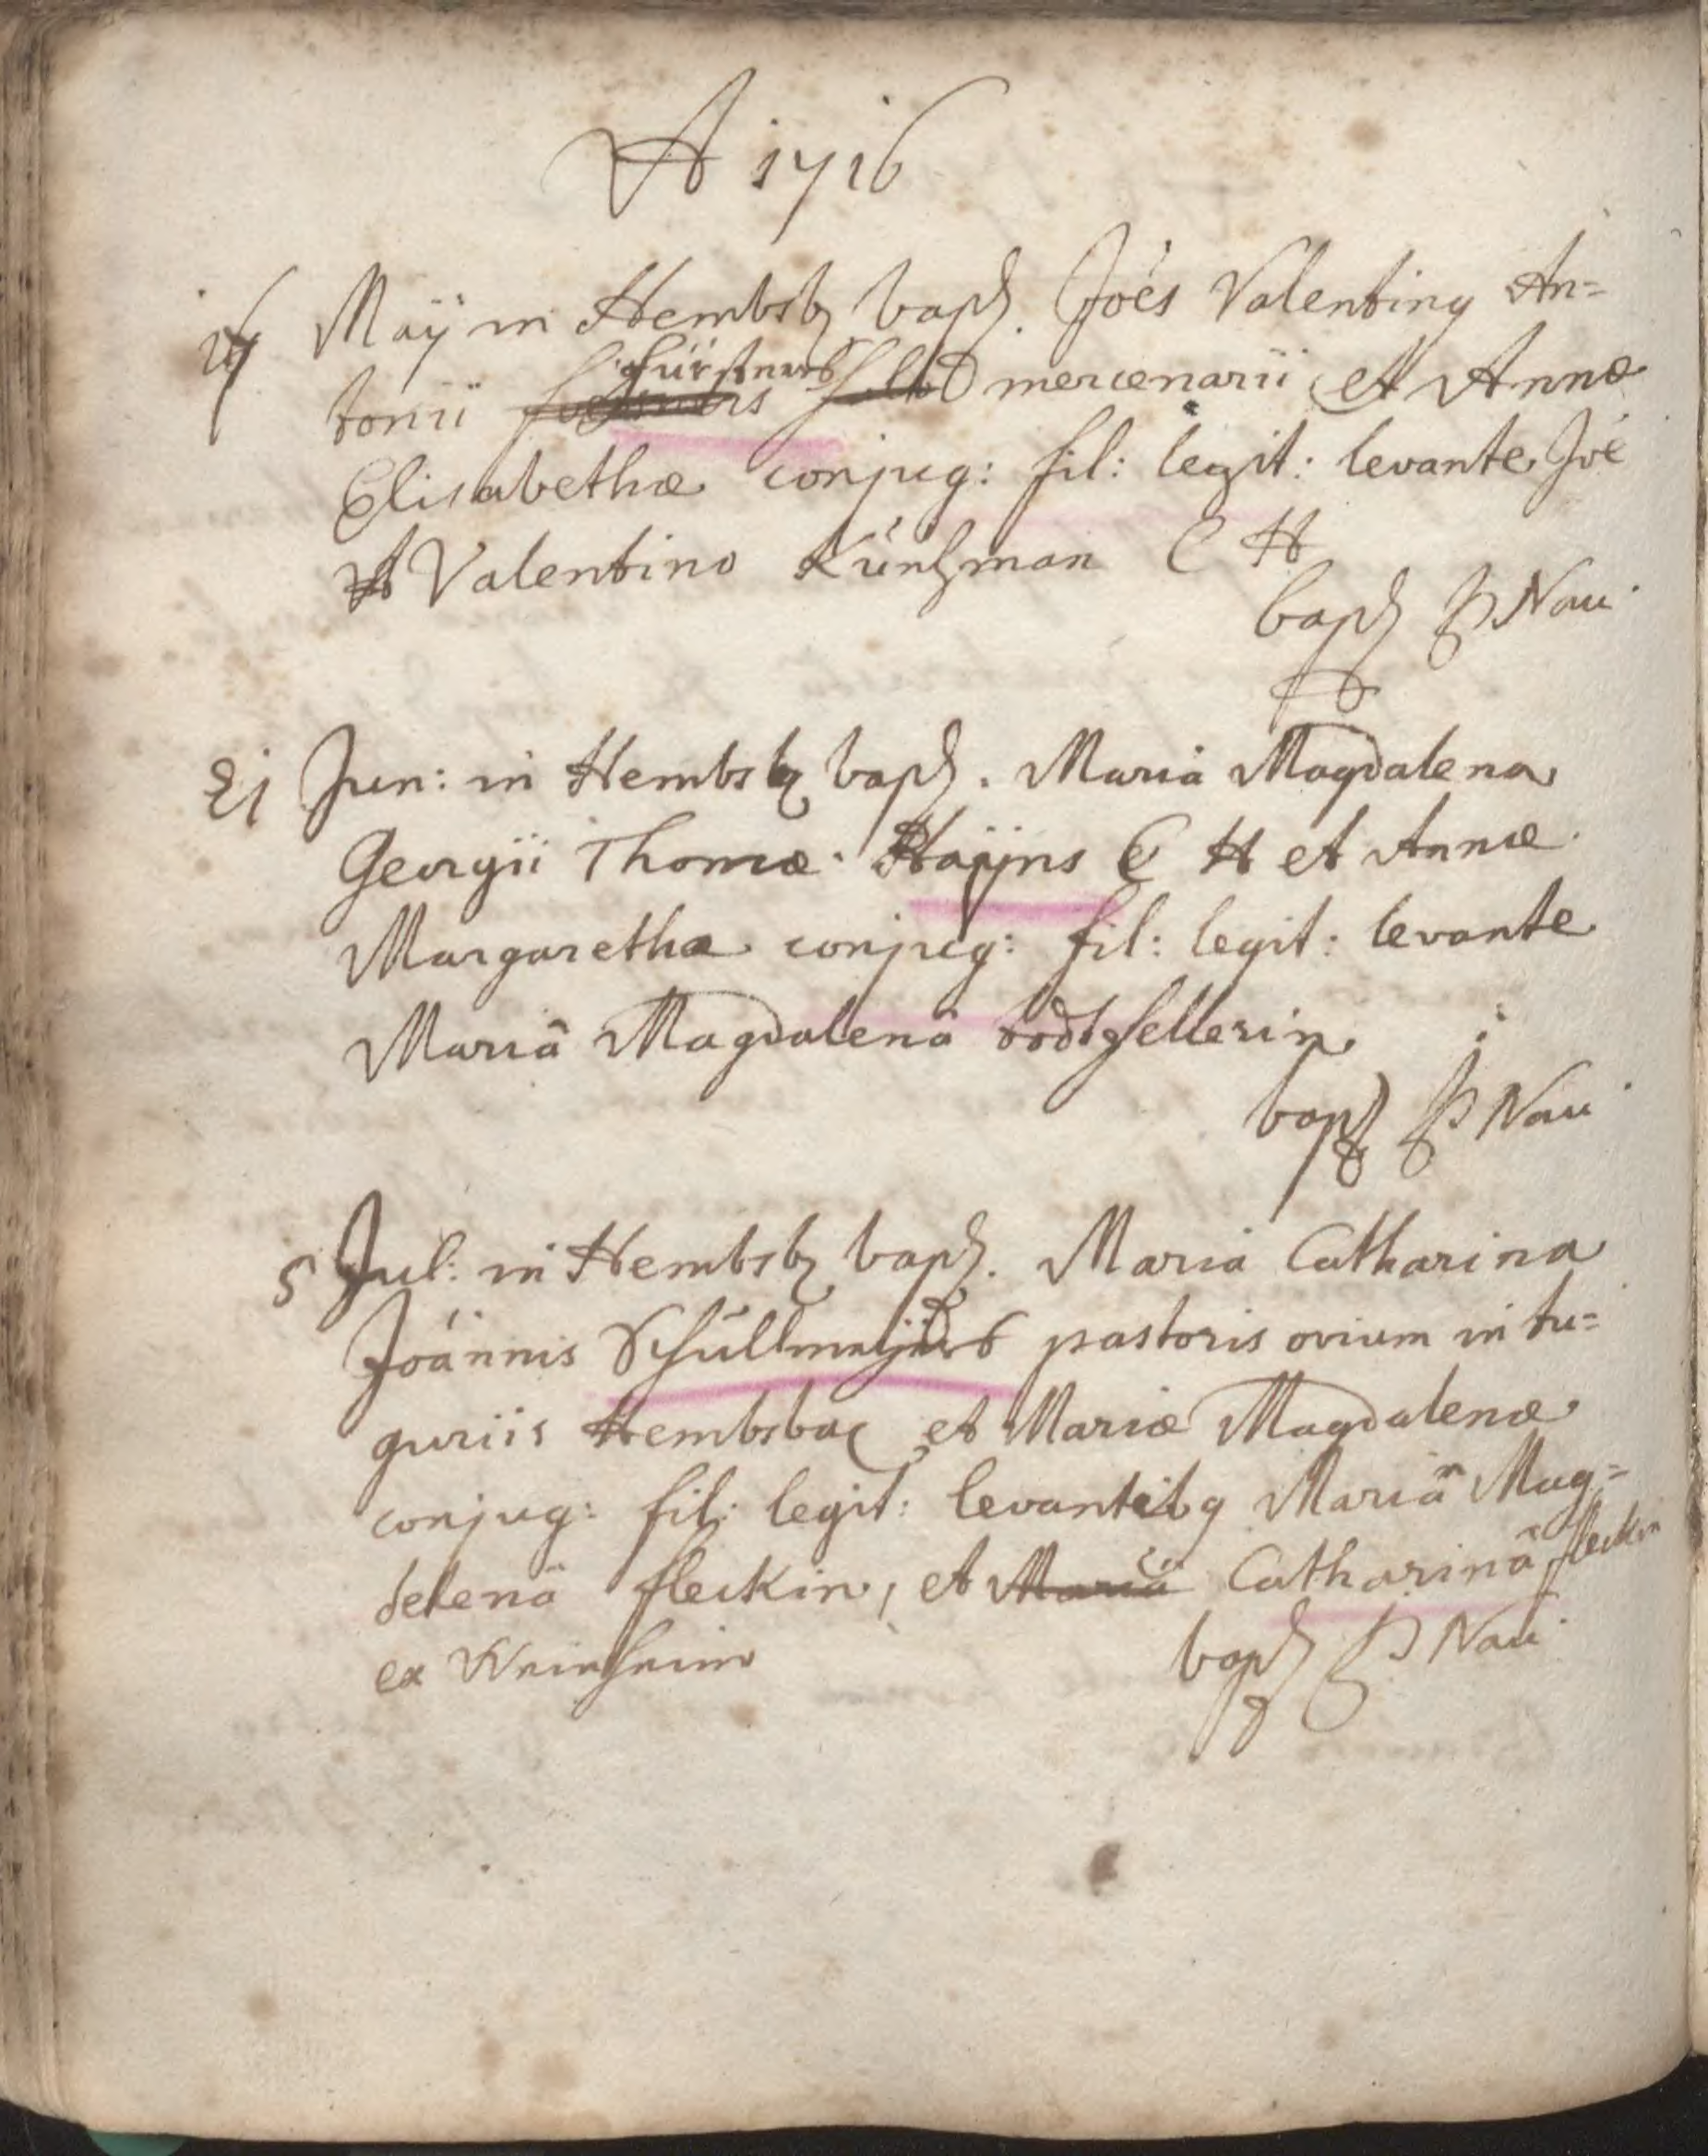 A 1716
Maÿ in Hembsb bapt. Joës Valentinq An=
fürstners
tonii mercenarii et Annæ
Elisabethæ conjug: fil: legit: levante Joë
Valentino Künzman C H
bapt P Nau
21 Jun: in Hembsb bapt. Maria Magdalena
Georgii Thomæ Haÿns C H et Annæ
Margarethæ conjug: fil: legit: levante
Mariâ Magdalenâ
bapt P Nau
5 Jul: in Hembsb bapt. Maria Catharina
Joannis pastoris ovium in tu=
guriis Hembsbac et Mariæ Magdalenæ
conjug: fil: legit: levantibq Mariâ Mag=
delenâ fleckin, et Mariâ Catharinâ fleckin
ex Weinheim
bapt P Nau